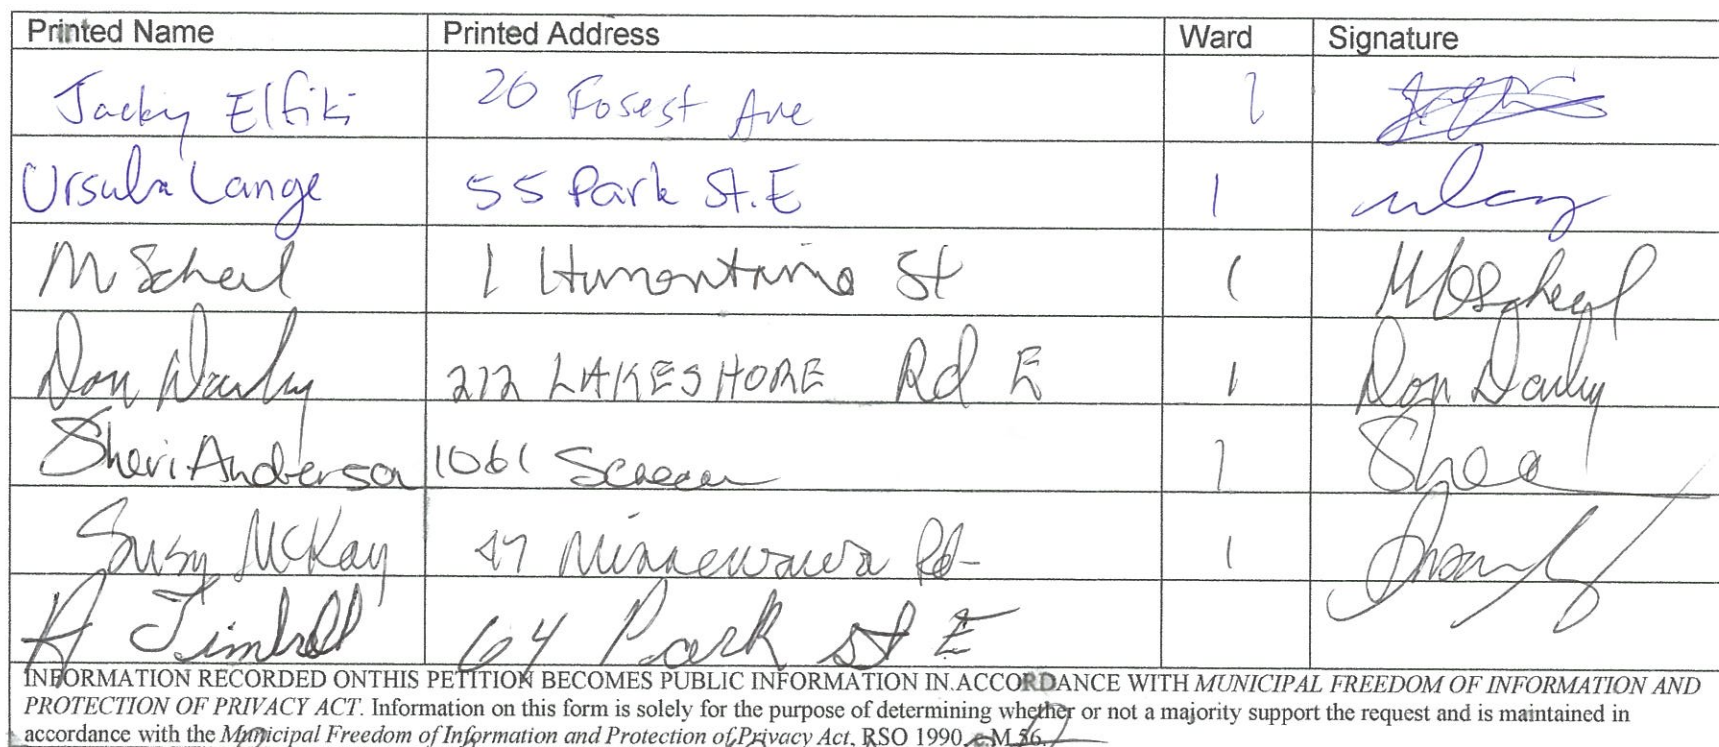 Printed Name Printed Address Ward Signature
Jacky Elfiki 20 Forest Ave 1
Ursula Lange 55 Park St. E 1
M Scheul 1 Hurontario St 1
Don Darby 272 LAKESHORE Rd E 1 Don Darby
Sheri Anderson 1061 1
Susy McKay 47 Minnewawa Rd 1
A Timbrell 64 Park St E
INFORMATION RECORDED ONTHIS PETITION BECOMES PUBLIC INFORMATION IN ACCORDANCE WITH MUNICIPAL FREEDOM OF INFORMATION AND
PROTECTION OF PRIVACY ACT. Information on this form is solely for the purpose of determining whether or not a majority support the request and is maintained in
accordance with the Municipal Freedom of Information and Protection of Privacy Act, RSO 1990, c.M.56.